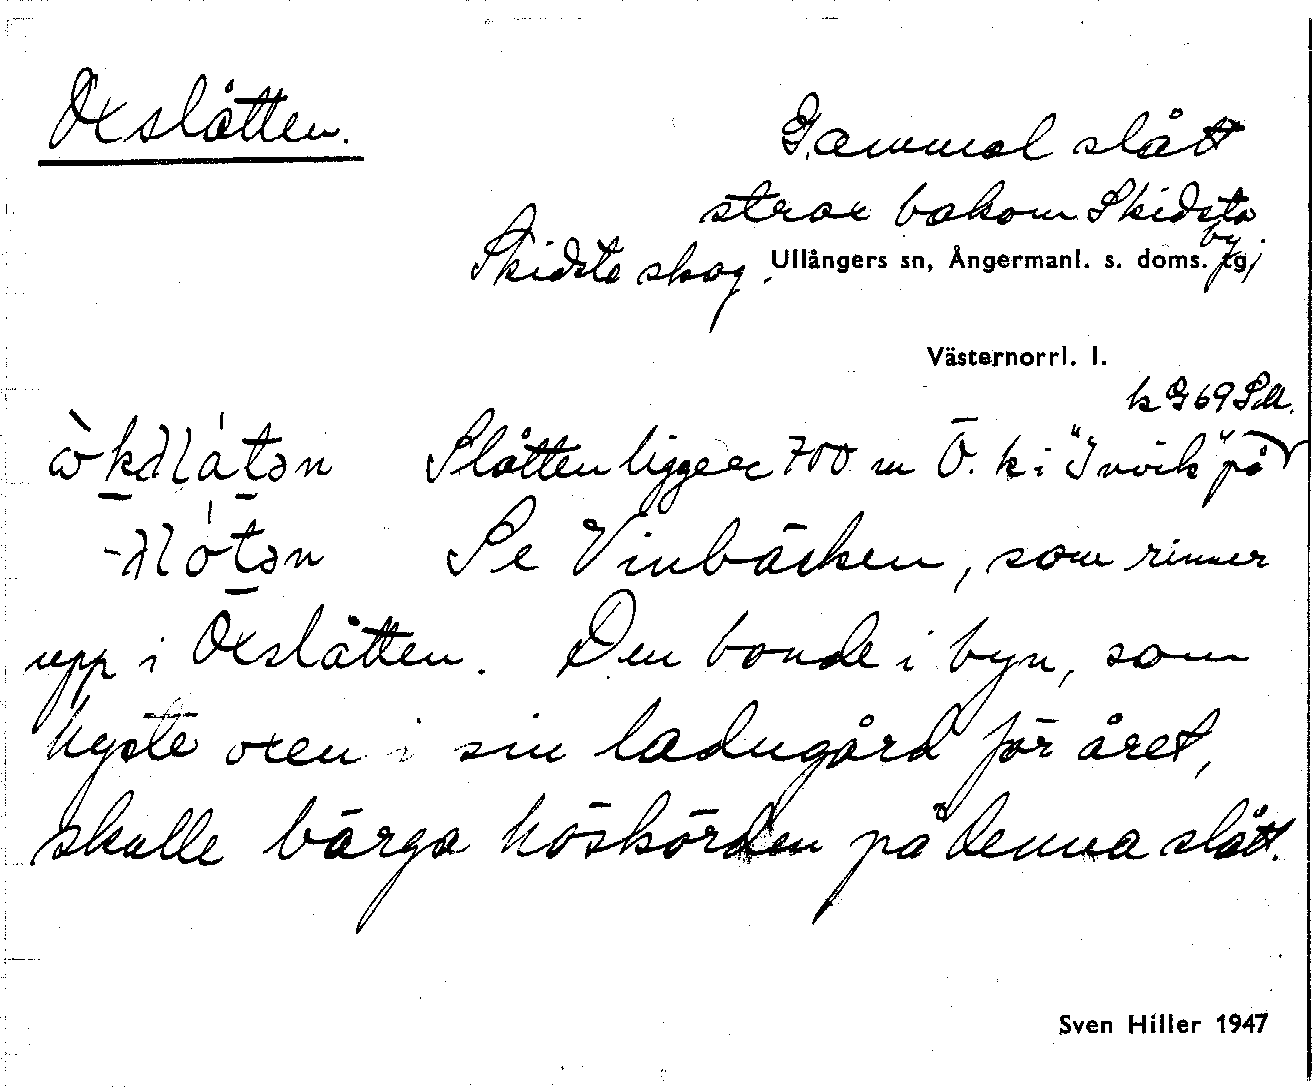 Oxslåtten.
Gammal slått
strax bakom Skidsta
by
Skidsta skog. Ullångers sn, Ångermanl. s. doms. tg
Västernorrl. l.
k G 69 Sdl.
Slåtten ligger 700 m Ö. k i "Invik" på
Se Vinbäcken, som rinner
upp i Oxslåtten. Den bonde i byn, som
hyste oxen i sin ladugård för året,
skulle bärga höskörden på denna slått.
Sven Hiller 1947